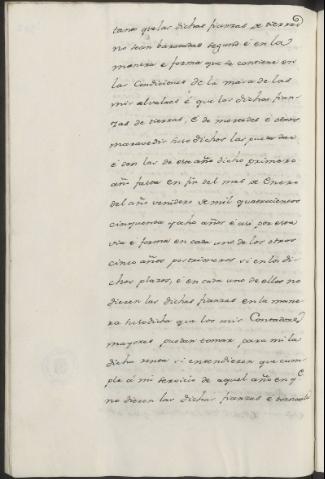 tanto que las dichas fianzas de tierras
no sean baratadas segund é en la
manera e forma que se contiene en
las Condiciones de la masa de las
mis alcavalas é que las dichas fian-
zas de tierras, é de mercedes é otros
maravedis suso dichos las pueda dar
é den las de este año dicho primero
año fasta en fin del mes de Enero
del año venidero de mil quatrocientos
cinquenta y ocho años é asi por esta
via e forma en cada uno de los otros
cinco años postrimeros si en los di-
chos plazos, é en cada uno de ellos no
dieren las dichas fianzas en la mane-
ra susodicha que los mis Contadores
mayores puedan tomar para mi la
dicha renta si entendieren que cum-
ple á mi servicio de aquel año en q.e
no dieren las dichas fianzas e tornarla